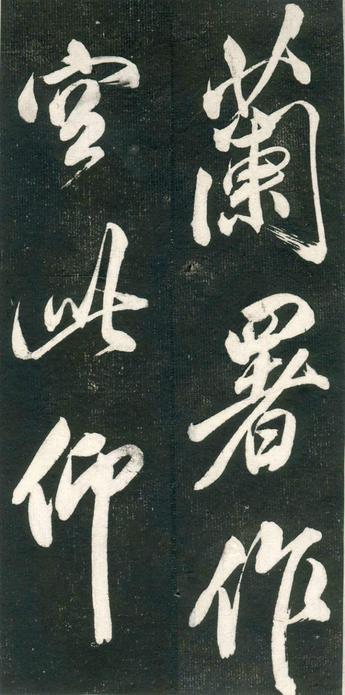 蘭署作
空此仰